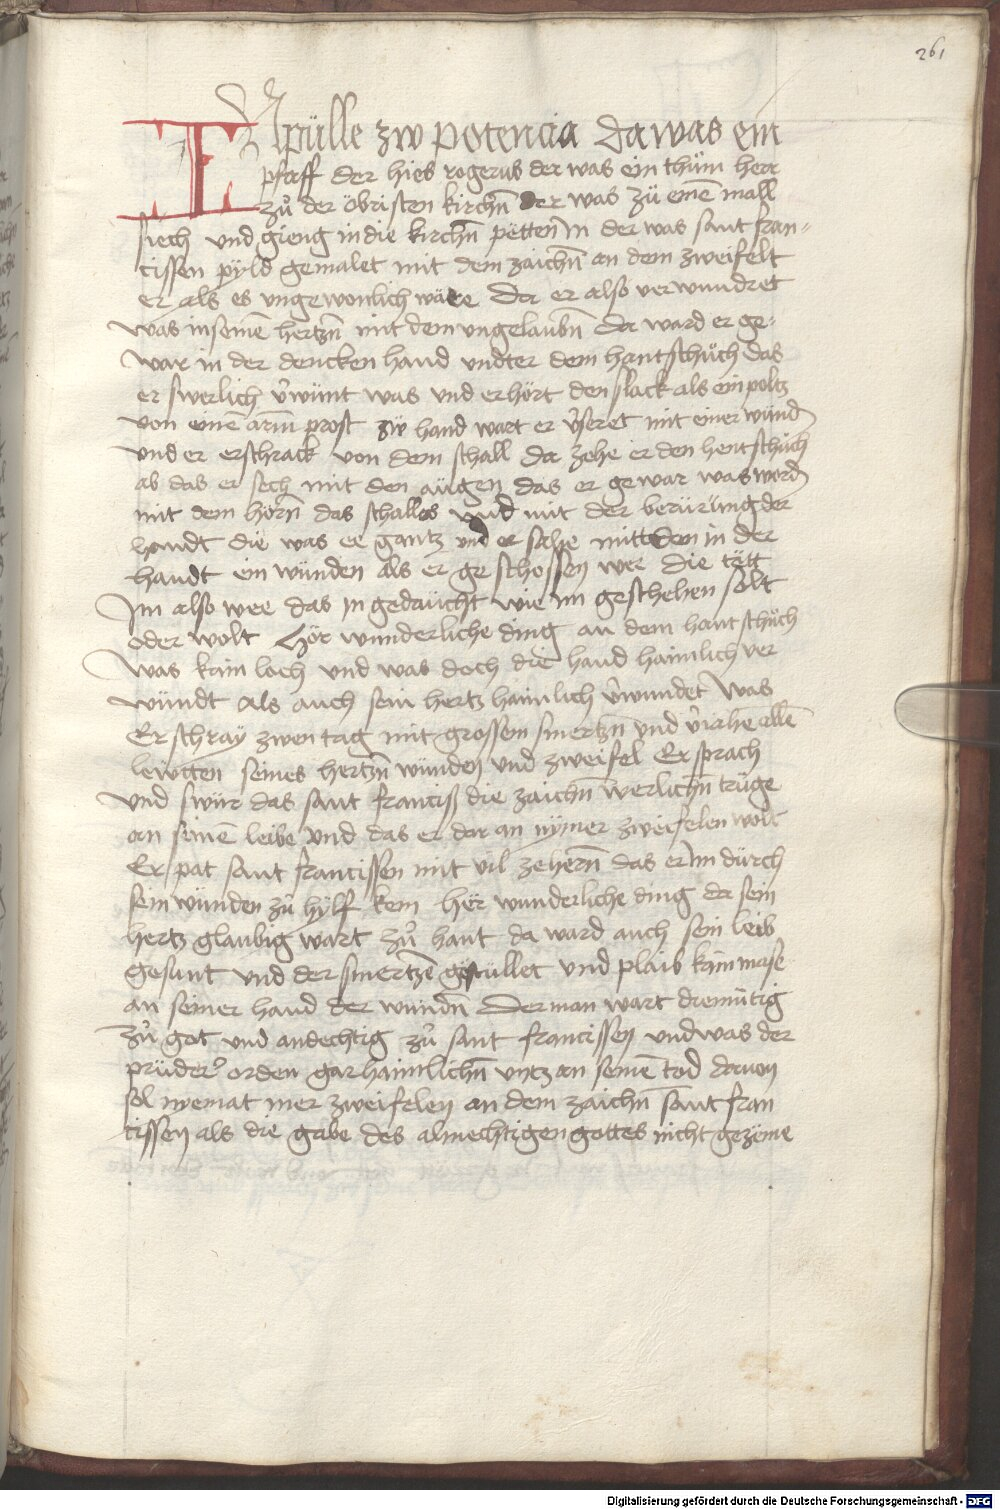 261
Apülle zw potencia da was ein
pfaff der hies rogerus der was ein thüm herr
zů der öbristen kirchn̄ der was zü einē mall
siech vnd gieng in die kirchn̄ pëtten In der was sant fran-
cissen pÿld gemalet mit dem zaichn̄ an dem zweifelt
er als es vngewonlich wäre Da er also verwundret
was in seinē hertzn̄ mit dem vngelaubn̄ da ward er ge-
war in der dencken hand vndter dem hantschüch das
er swerlich v̉wünt was vnd er hört den slack als ein poltz
von einē arm prost zw hand wart er v̉seret mit einer wünd
vnd er erschrack von dem schall da zehe er den hentschüch
ab das er sech mit den augen das er gewar was word
mit dem hörn̄ das schalles vnd mit der berürüng der
handt die was ee gantz vnd er sahe mitt den in der
handt ein wünden als er geschossen wer die tëtt
Im also wee das in gedaücht wie im geschehen solt
oder wolt Hör wunderliche ding an dem hantschüch
was kain loch vnd was doch die hand haimlich ver
wündt Als auch sein hertz haimlich v̉wundet was
Er schraÿ zwen tag mit grossem smertzn̄ vnd v̉iahē allē
lewtten seines hertzn̄ wünden vnd zweifel Er sprach
vnd swür das sant franciss die zaichn̄ werlichn̄ trüge
an seinē leibe vnd das er dar an nÿmer zweifelen wolt
Er pat sant francissen mit vil zehern̄ das er im dürch
sein wünden zů hÿlf kem hör wunderliche ding da sein
hertz glaubig wart zů hant da ward auch sein leib
gesunt vnd der smertzē gestüllet vnd plaib kain mase
an seiner hand der wundn̄ Der man wart diemütig
zů got vnd andechtig zů sant francissen vnd was der
prüder orden gar haimlichn̄ vntz an seinē tod davon
sol nyemat mer zweifelen an dem zaichn̄ sant fran
cissen als die gabe des almechtigen gottes nicht gezëme
Digitalisierung gefördert durch die Deutsche Forschungsgemeinschaft - DFG